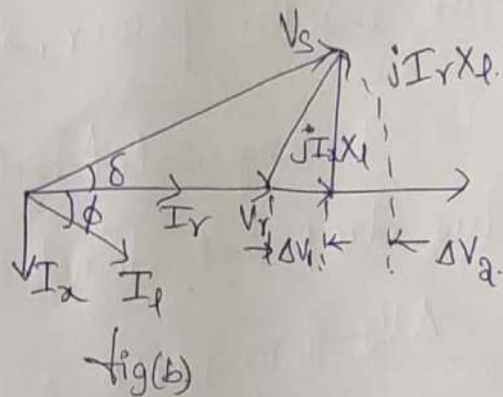 Vs
jIrXl.
jIxXl
δ
ϕ
Ir
Vr
ΔV1
ΔV2
Ix
Il
fig(b)